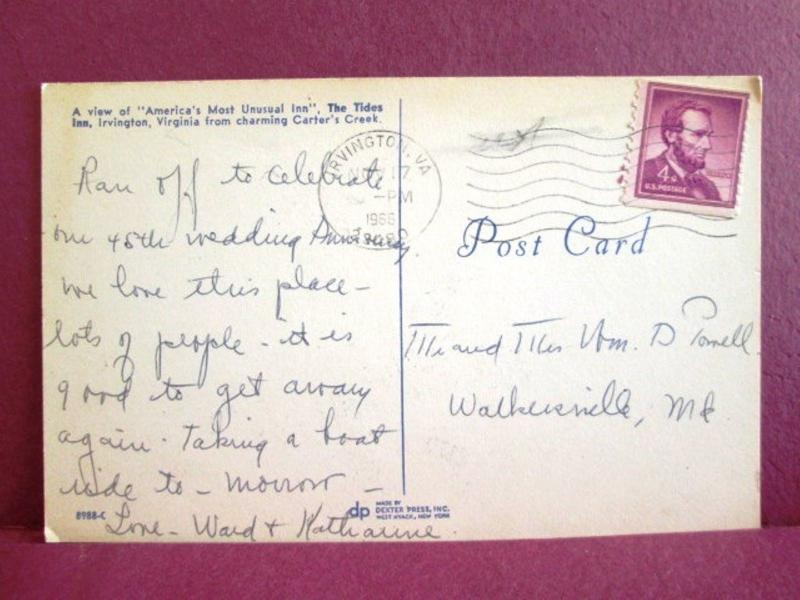 A view of "America's Most Unusual Inn", The Tides
Inn, Irvington, Virginia from charming Carter's Creek.
Ran off to celebrate
our 45th wedding Anniversary
we love this place -
lots of people - it is
good to get away
again. Taking a boat
ride to - morrow -
Love - Ward & Katharine.
8988-C
dp
MADE BY
DEXTER PRESS, INC.
WEST NYACK, NEW YORK
IRVINGTON, VA
NOV 17
PM
1966
4¢
U.S. POSTAGE
Post Card
Mr and Mrs Wm. D Powell
Walkersville, Md.